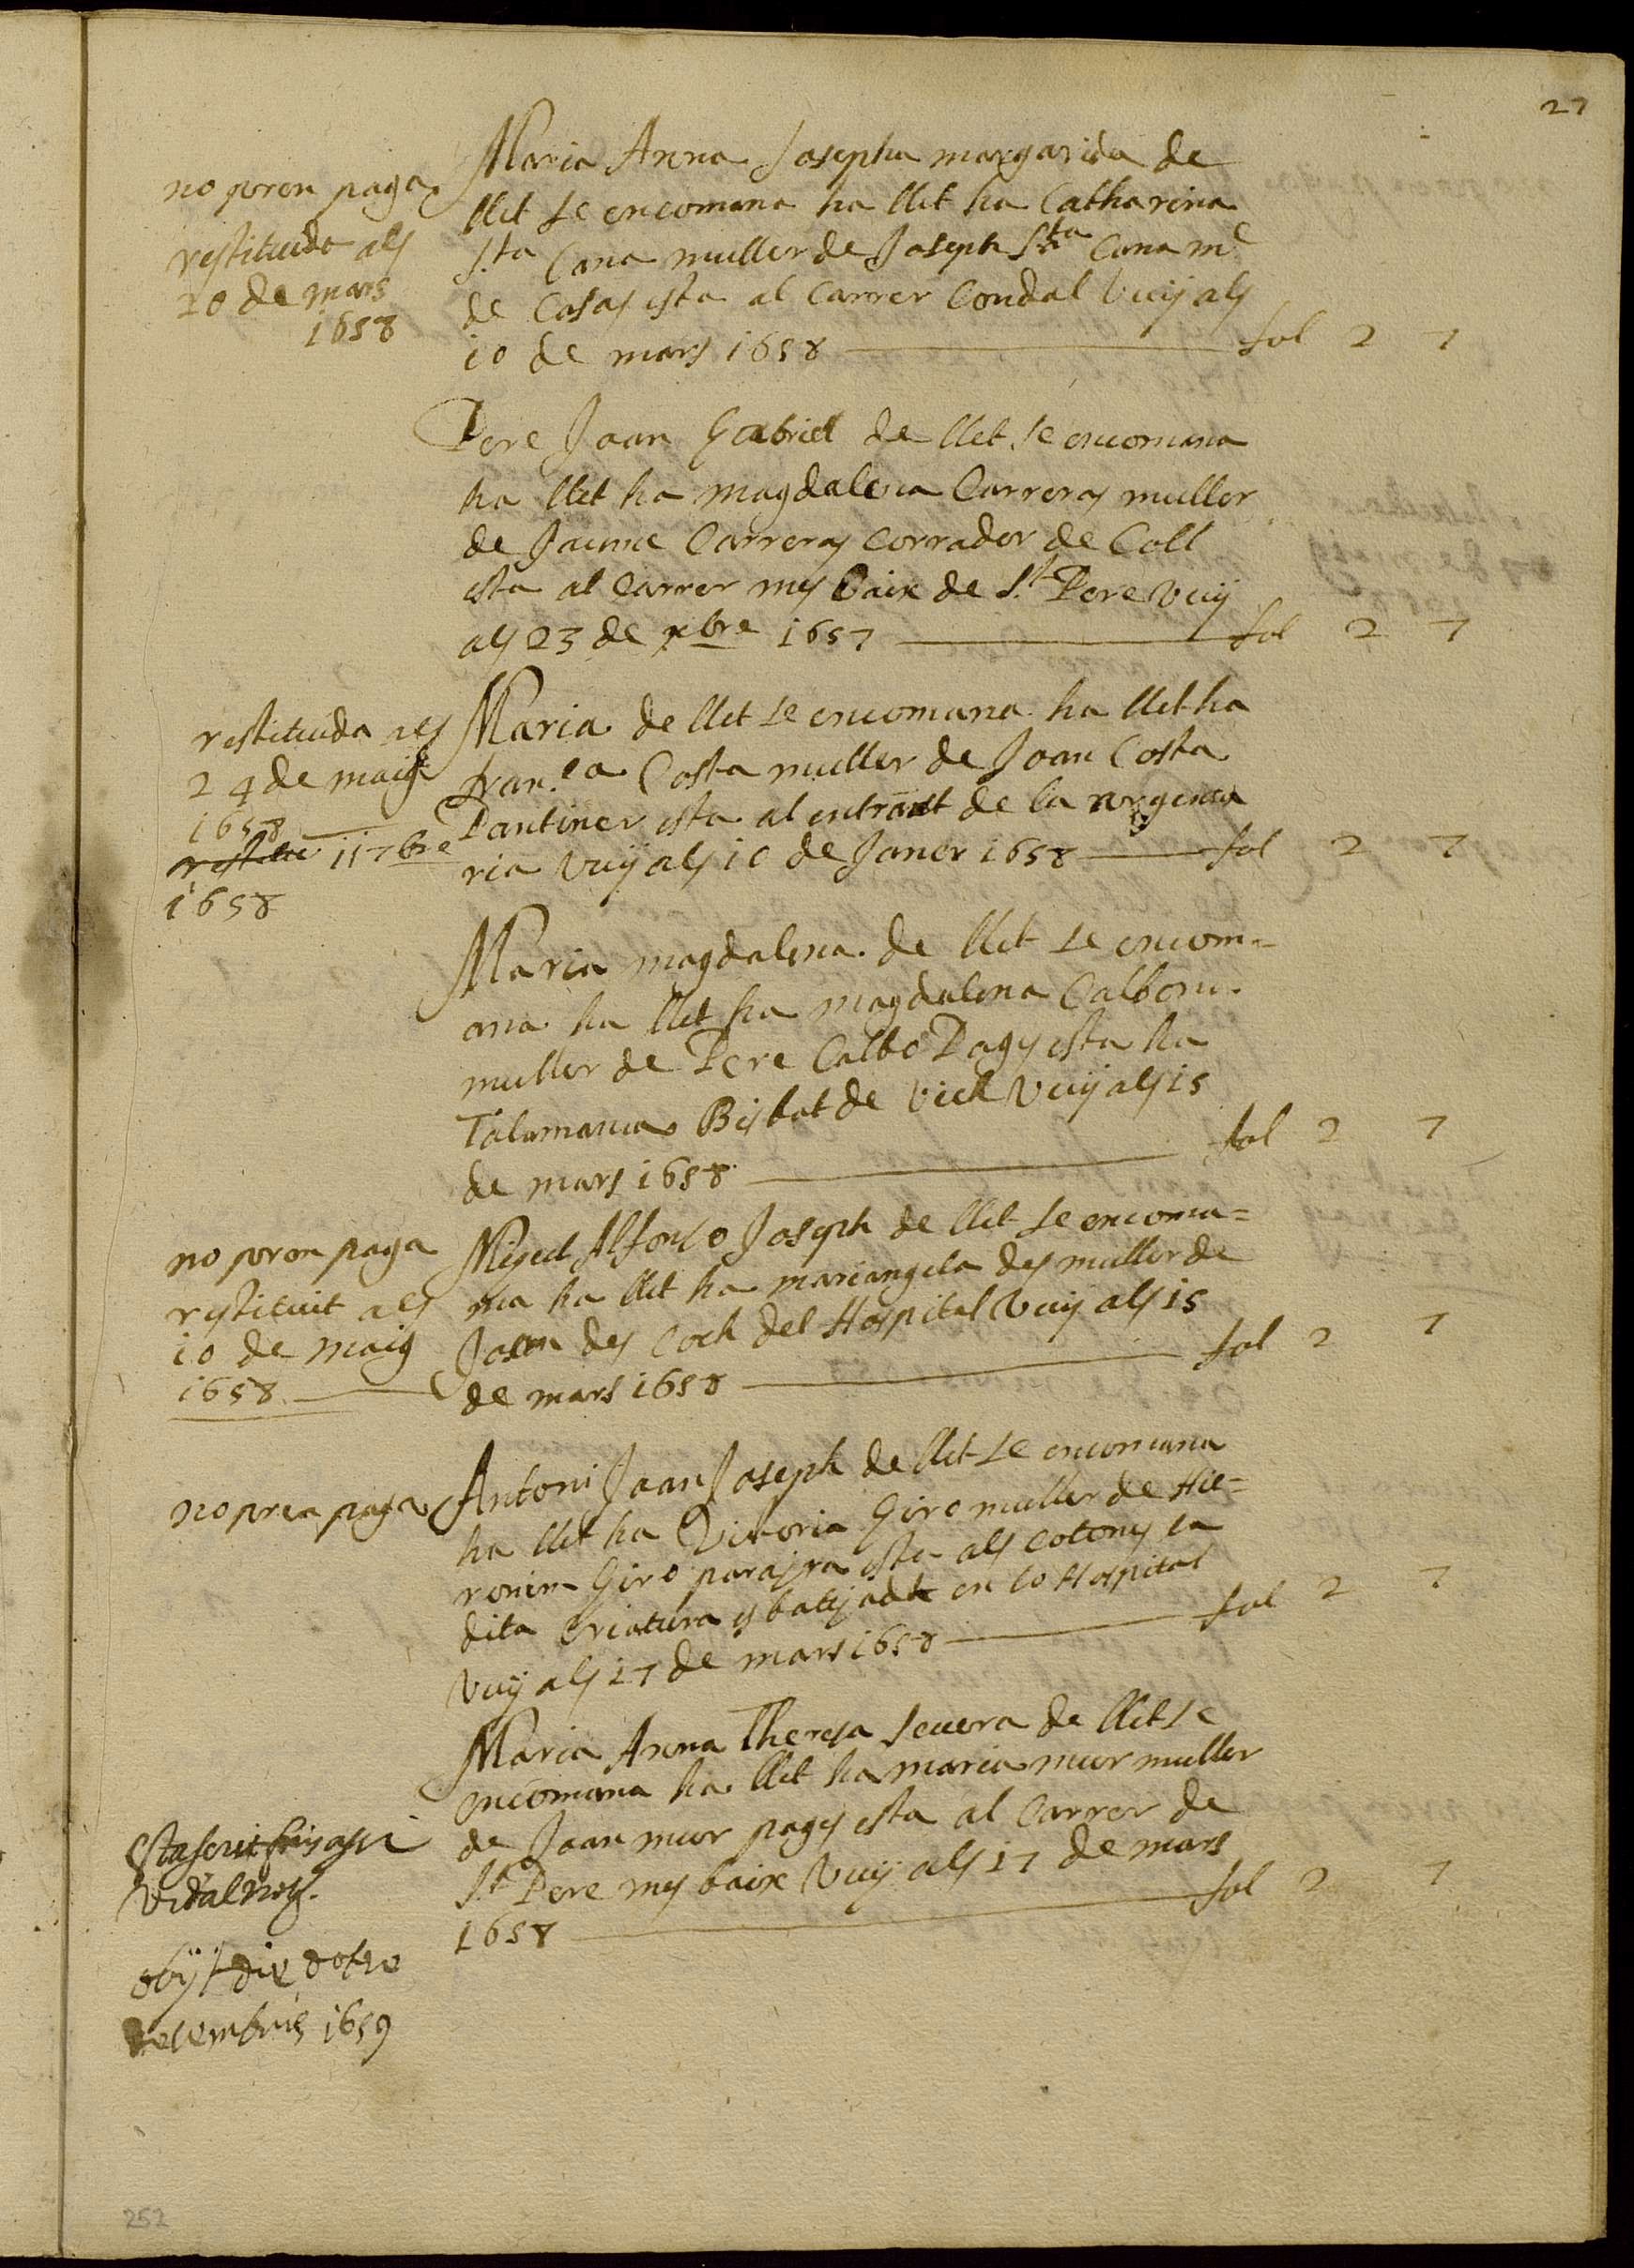 27
no poren paga
restituida als
20 de mars
1658
Maria Anna Josepha margarida de
llet se encomana ha llet ha Catharina
S.ta Cana muller de Joseph S.ta Cana m.e
de Casas esta al Carrer Condal Vuy als
10 de mars 1658 fol 2 7
Pere Joan Gabriel de llet se encomana
ha llet ha magdalena Carreras muller
de Jaume Carreras Corrador de Coll
esta al Carrer mes baix de S.t Pere Vuy
als 23 de xbre 1657 fol 2 7
restituida als
24 de maig
1658
restitui 11 7bre
1658
Maria de llet se encomana ha llet ha
fran.ca Costa muller de Joan Costa
Pantiner esta al entrant de la argenta
ria Vuy als 10 de Janer 1658 fol 2 7
Maria magdalena de llet se encom=
ana ha llet ha magdalena Calbo
muller de Pere Calbo Pages esta ha
Talamanca Bisbat de Vich Vuy als 15
de mars 1658 fol 2 7
no poren paga
restituit als
10 de maig
1658
Miquel Alfonso Joseph de llet se encoma=
na ha llet ha mariangela des muller de
Joan des Coch del Hospital Vuy als 15
de mars 1658 fol 2 7
no pren paga
Antoni Joan Joseph de llet se encomana
ha llet ha Victoria Giro muller de Hie=
ronim Giro parayra esta als cotoners la
dita Criatura es batejada en lo Hospital
Vuy als 17 de mars 1658 fol 2 7
Maria Anna Theresa Severa de llet se
encomana ha llet ha maria mur muller
de Joan mur pages esta al Carrer de
S.t Pere mes baix Vuy als 17 de mars
1658 fol 2 7
Vidal not.
obijt die
decembris 1659
252